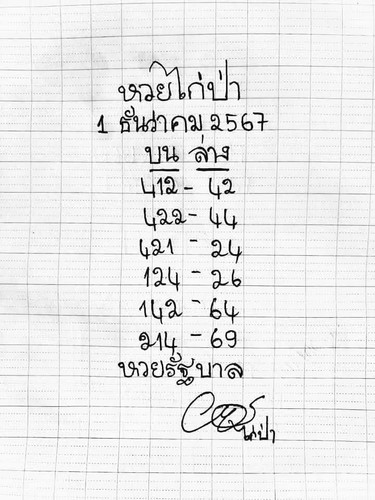 หวยไก่ป่า
1 ธันวาคม 2567
บน ล่าง
412 - 42
422 - 44
421 - 24
124 - 26
142 - 64
214 - 69
หวยรัฐบาล
ไก่ป่า